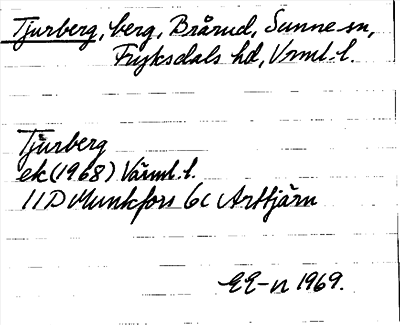 Tjurberg, berg, Brårud, Sunne sn,
Fryksdals hd, Vrml. l.
Tjurberg
ek (1968) Värml. l.
11D Munkfors 6c Arttjärn
EE-n 1969.